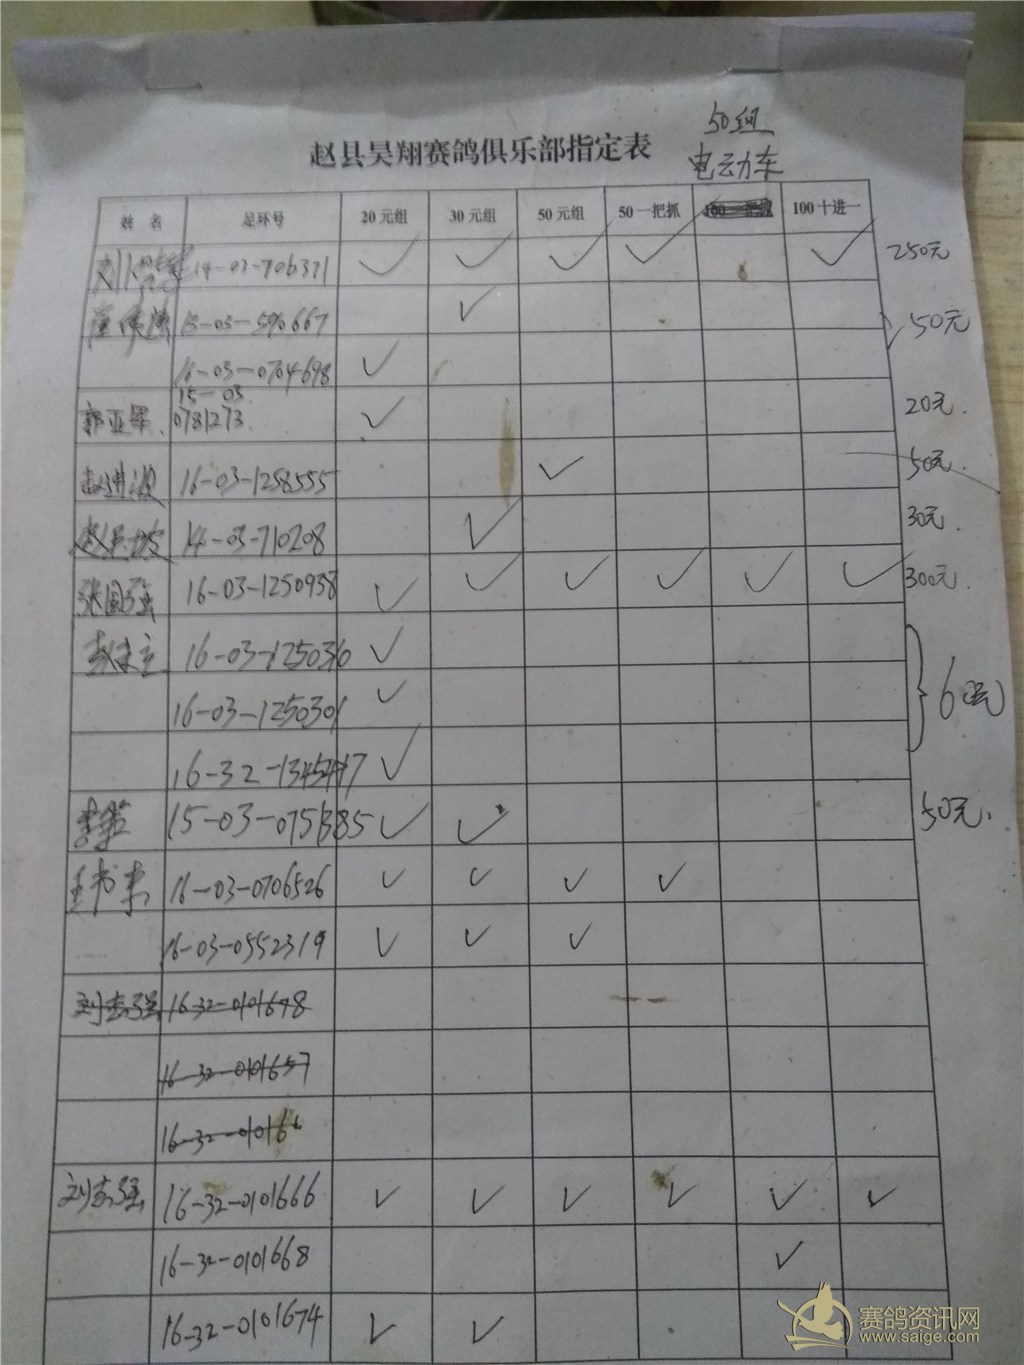 50组
电动车
赵县昊翔赛鸽俱乐部指定表
姓 名 足环号 20元组 30元组 50元组 50一把抓 100一把抓 100十进一
14-03-706371 ✓ ✓ ✓ ✓ ✓ 250元
15-03-590667 ✓ 50元
16-03-0704698 ✓
郭亚军 15-03- 0781273 ✓ 20元
16-03-1258555 ✓ 50元
14-03-710208 ✓ 30元
张国强 16-03-1250938 ✓ ✓ ✓ ✓ ✓ ✓ 300元
16-03-1250310 ✓ 60元
16-03-1250301 ✓
16-32- ✓
15-03- ✓ ✓ 50元
王书 16-03-0706526 ✓ ✓ ✓ ✓
16-03-0552319 ✓ ✓ ✓
刘志强 16-32-0101648
16-32-0101657
16-32-010166
刘志强 16-32-0101666 ✓ ✓ ✓ ✓ ✓ ✓
16-32-0101668 ✓
16-32-0101674 ✓ ✓
赛鸽资讯网
www.saige.com